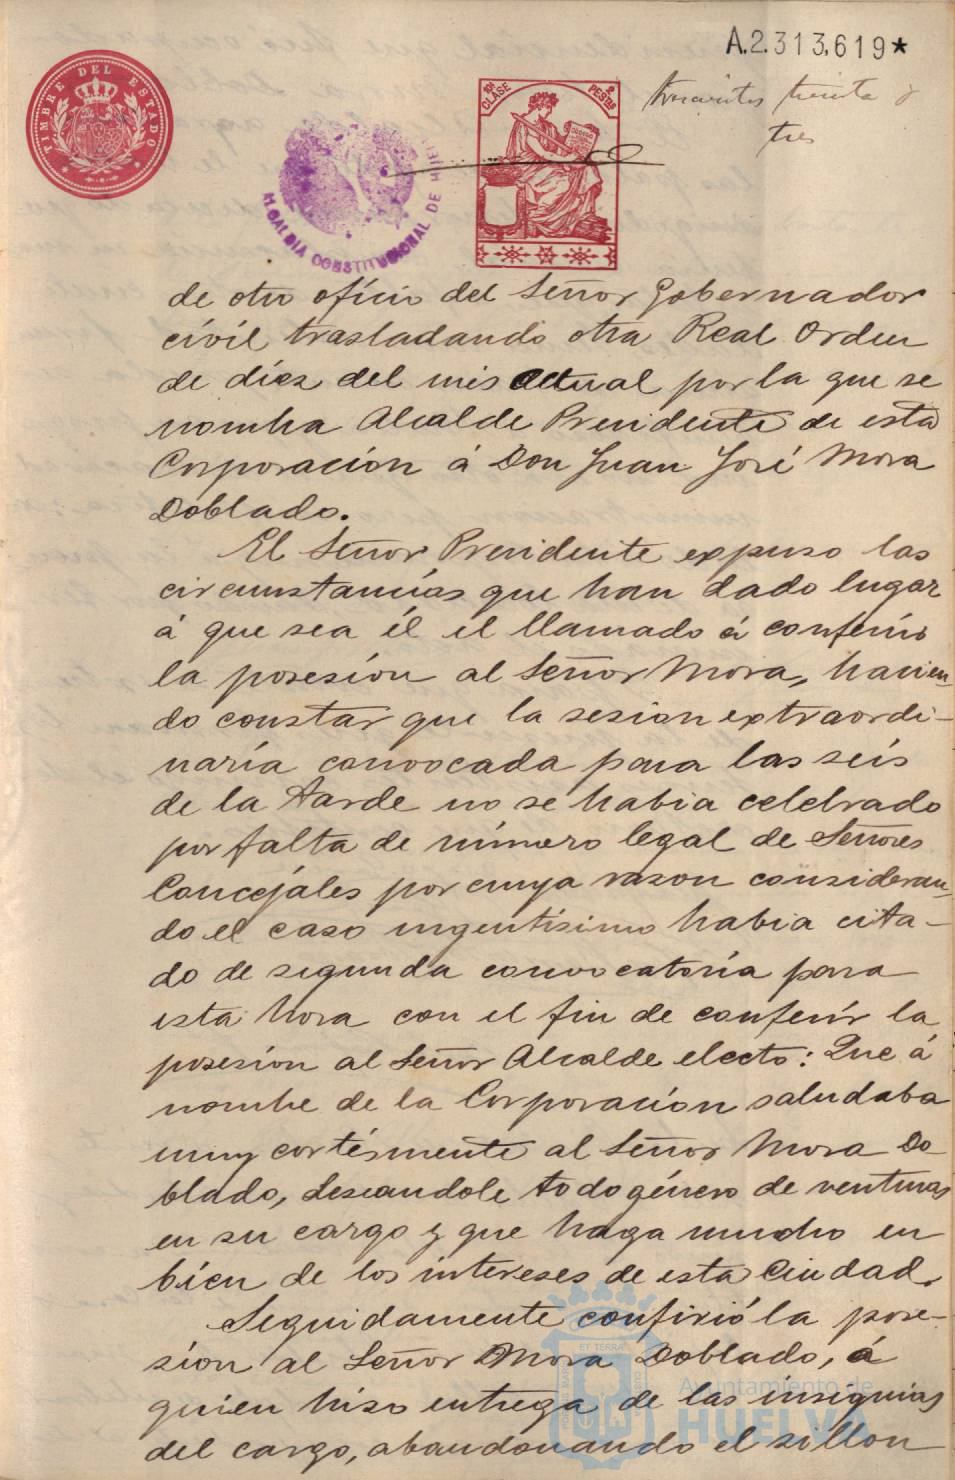 A.2.313,619*
TIMBRE DEL ESTADO
10ª CLASE
2 PESETAS
ALCALDIA CONSTITUCIONAL DE HUEL
trescientos treinta y
tres
de otro oficio del Señor Gobernador
civil trasladando otra Real Orden
de diez del mes actual por la que se
nombra Alcalde Presidente de esta
Corporación á Don Juan José Mora
Doblado.
El Señor Presidente expuso las
circunstancias que han dado lugar
á que sea él el llamado á conferir
la posesión al Señor Mora, hacien-
do constar que la sesion extraordi-
naria convocada para las seis
de la tarde no se habia celebrado
por falta de número legal de Señores
Concejales por cuya razon consideran-
do el caso urgentísimo habia cita-
do de segunda convocatoria para
esta hora con el fin de conferir la
posesion al Señor Alcalde electo: Que á
nombre de la Corporación saludaba
muy cortésmente al Señor Mora Do-
blado, deseandole todo género de venturas
en su cargo y que haga mucho en
bien de los intereses de esta Ciudad.
Seguidamente confirió la pose-
sion al Señor Mora Doblado, á
quien hizo entrega de las insignias
del cargo, abandonando el sillon
ET TERRA
Ayuntamiento de
HUELVA